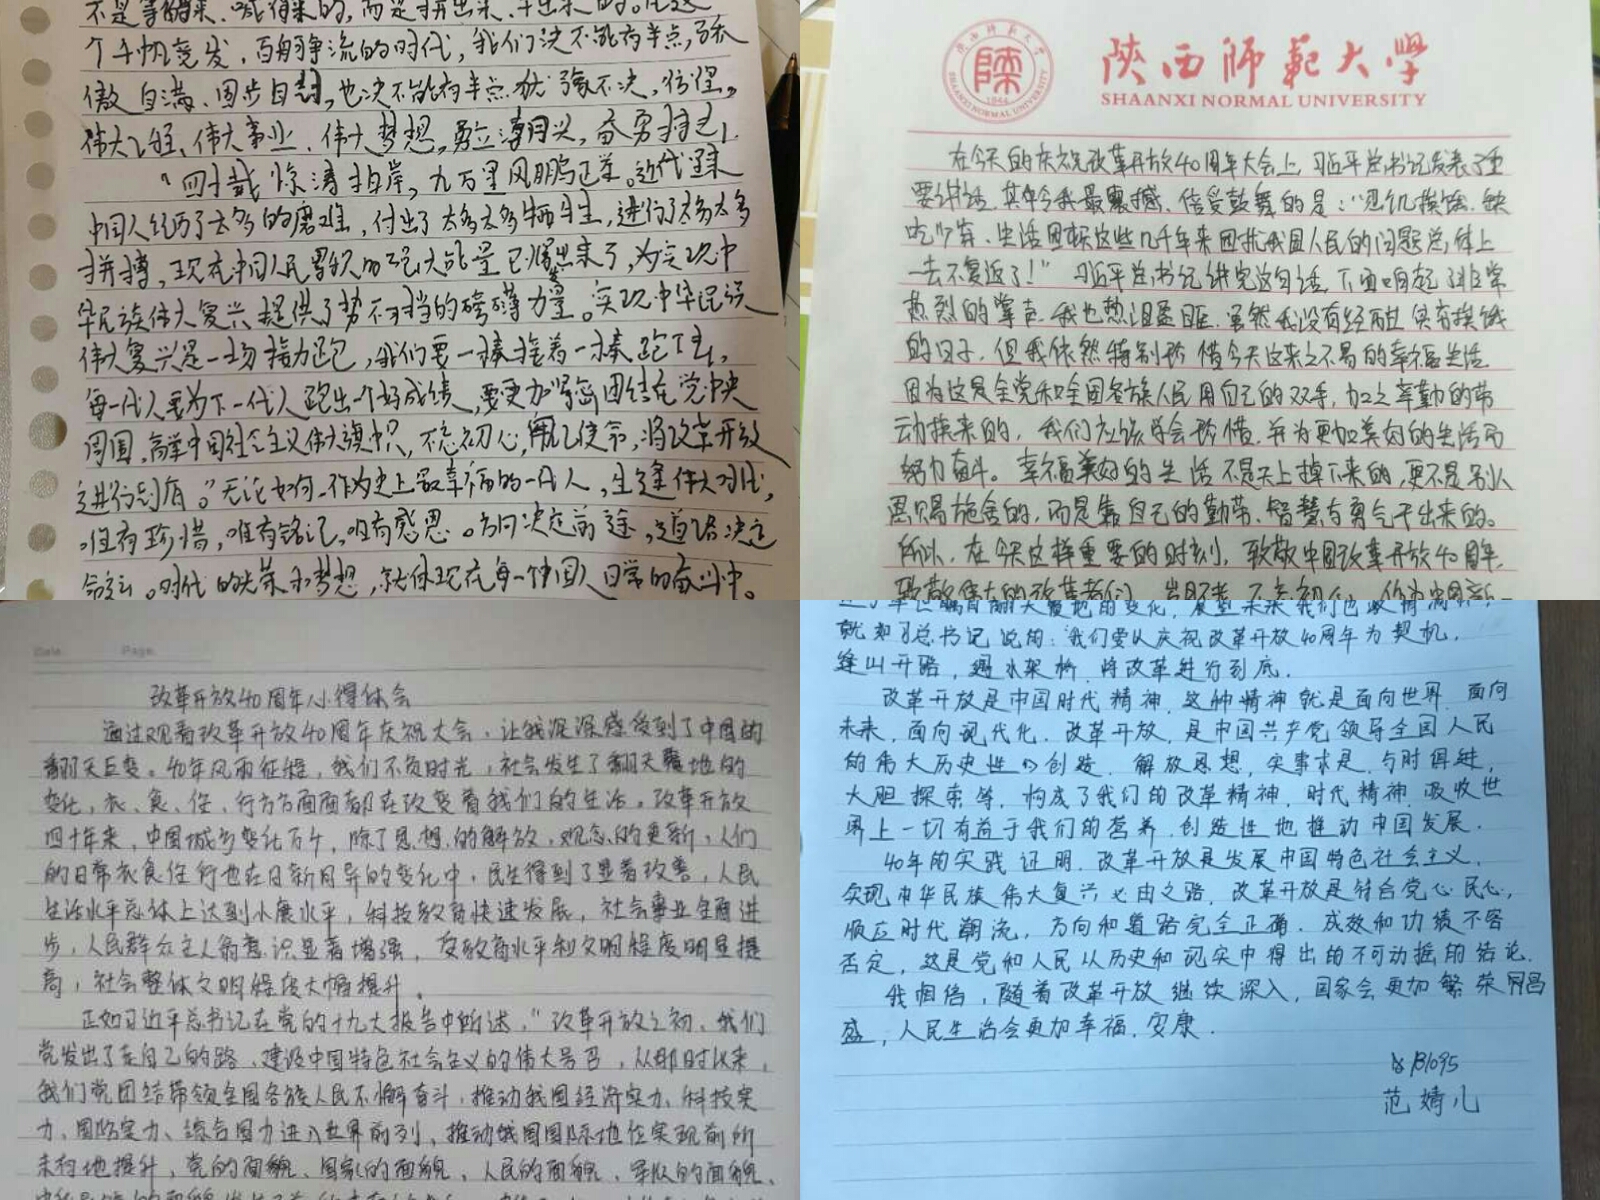 不是等得来、喊得来的，而是拼出来、干出来的。在这
个千帆竞发，百舸争流的时代，我们决不能有半点骄
傲自满、固步自封，也决不能有半点犹豫不决，彷徨。
伟大工程、伟大事业、伟大梦想，勇立潮头，奋勇搏击！
"四十载惊涛拍岸，九万里风鹏正举。近代以来
中国人经历了太多的磨难，付出了太多太多牺牲，进行了太多太多
拼搏，现在中国人民累积的强大能量已爆发出来了，为实现中
华民族伟大复兴提供了势不可挡的磅礴力量。实现中华民族
伟大复兴是一场接力跑，我们要一棒接着一棒跑下去，
每一代人要为下一代人跑出一个好成绩，要更加紧密团结在党中央
周围，高举中国社会主义伟大旗帜，不忘初心，牢记使命，将改革开放
进行到底。"无论如何，作为史上最幸福的一代人，生逢伟大时代，
唯有珍惜，唯有铭记，唯有感恩。方向决定前途，道路决定
命运。时代的光荣和梦想，就体现在每一个中国人日常的奋斗中。
陕西师范大学
SHAANXI NORMAL UNIVERSITY
在今天的庆祝改革开放40周年大会上，习近平总书记发表了重
要讲话，其中令我最震撼、倍受鼓舞的是："忍饥挨饿、缺
吃少穿、生活困顿这些几千年来困扰我国人民的问题总体上
一去不复返了！"习近平总书记讲完这句话，下面响起了非常
热烈的掌声，我也热泪盈眶。虽然我没有经历过真有挨饿
的日子，但我依然特别珍惜今天这来之不易的幸福生活。
因为这是全党和全国各族人民用自己的双手，加之辛勤的劳
动换来的，我们应该学会珍惜，并为更加美好的生活而
努力奋斗。幸福美好的生活不是天上掉下来的，更不是别人
恩赐施舍的，而是靠自己的勤劳、智慧与勇气干出来的。
所以，在今天这样重要的时刻，致敬中国改革开放40周年，
致敬伟大的改革者们
Date. Page.
改革开放40周年心得体会
通过观看改革开放40周年庆祝大会，让我深深感受到了中国的
翻天巨变。40年风雨征程，我们不负时光，社会发生了翻天覆地的
变化，衣、食、住、行方方面面都在改变着我们的生活。改革开放
四十年来，中国城乡变化万千，除了思想的解放、观念的更新，人们
的日常衣食住行也在日新月异的变化中，民生得到了显著改善，人民
生活水平总体上达到小康水平，科技教育快速发展，社会事业全面进
步，人民群众主人翁意识显著增强，受教育水平和文明程度明显提
高，社会整体文明程度大幅提升。
正如习近平总书记在党的十九大报告中所述，"改革开放之初，我们
党发出了走自己的路，建设中国特色社会主义的伟大号召，从那时以来，
我们党团结带领全国各族人民不懈奋斗，推动我国经济实力、科技实
力、国防实力、综合国力进入世界前列，推动我国国际地位实现前所
未有地提升，党的面貌、国家的面貌、人民的面貌、军队的面貌、
翻天覆地的变化，展望未来我们也
就如习总书记说的：我们要以庆祝改革开放40周年为契机，
逢山开路，遇水架桥，将改革进行到底。
改革开放是中国时代精神，这种精神就是面向世界，面向
未来，面向现代化。改革开放，是中国共产党领导全国人民
的伟大历史性的创造。解放思想，实事求是，与时俱进，
大胆探索等，构成了我们的改革精神，时代精神，吸收世
界上一切有益于我们的营养，创造性地推动中国发展。
40年的实践证明，改革开放是发展中国特色社会主义，
实现中华民族伟大复兴必由之路，改革开放是符合党心民心，
顺应时代潮流，方向和道路完全正确，成效和功绩不容
否定，这是党和人民从历史和现实中得出的不可动摇的结论。
我相信，随着改革开放继续深入，国家会更加繁荣昌
盛，人民生活会更加幸福、安康。
范婧儿